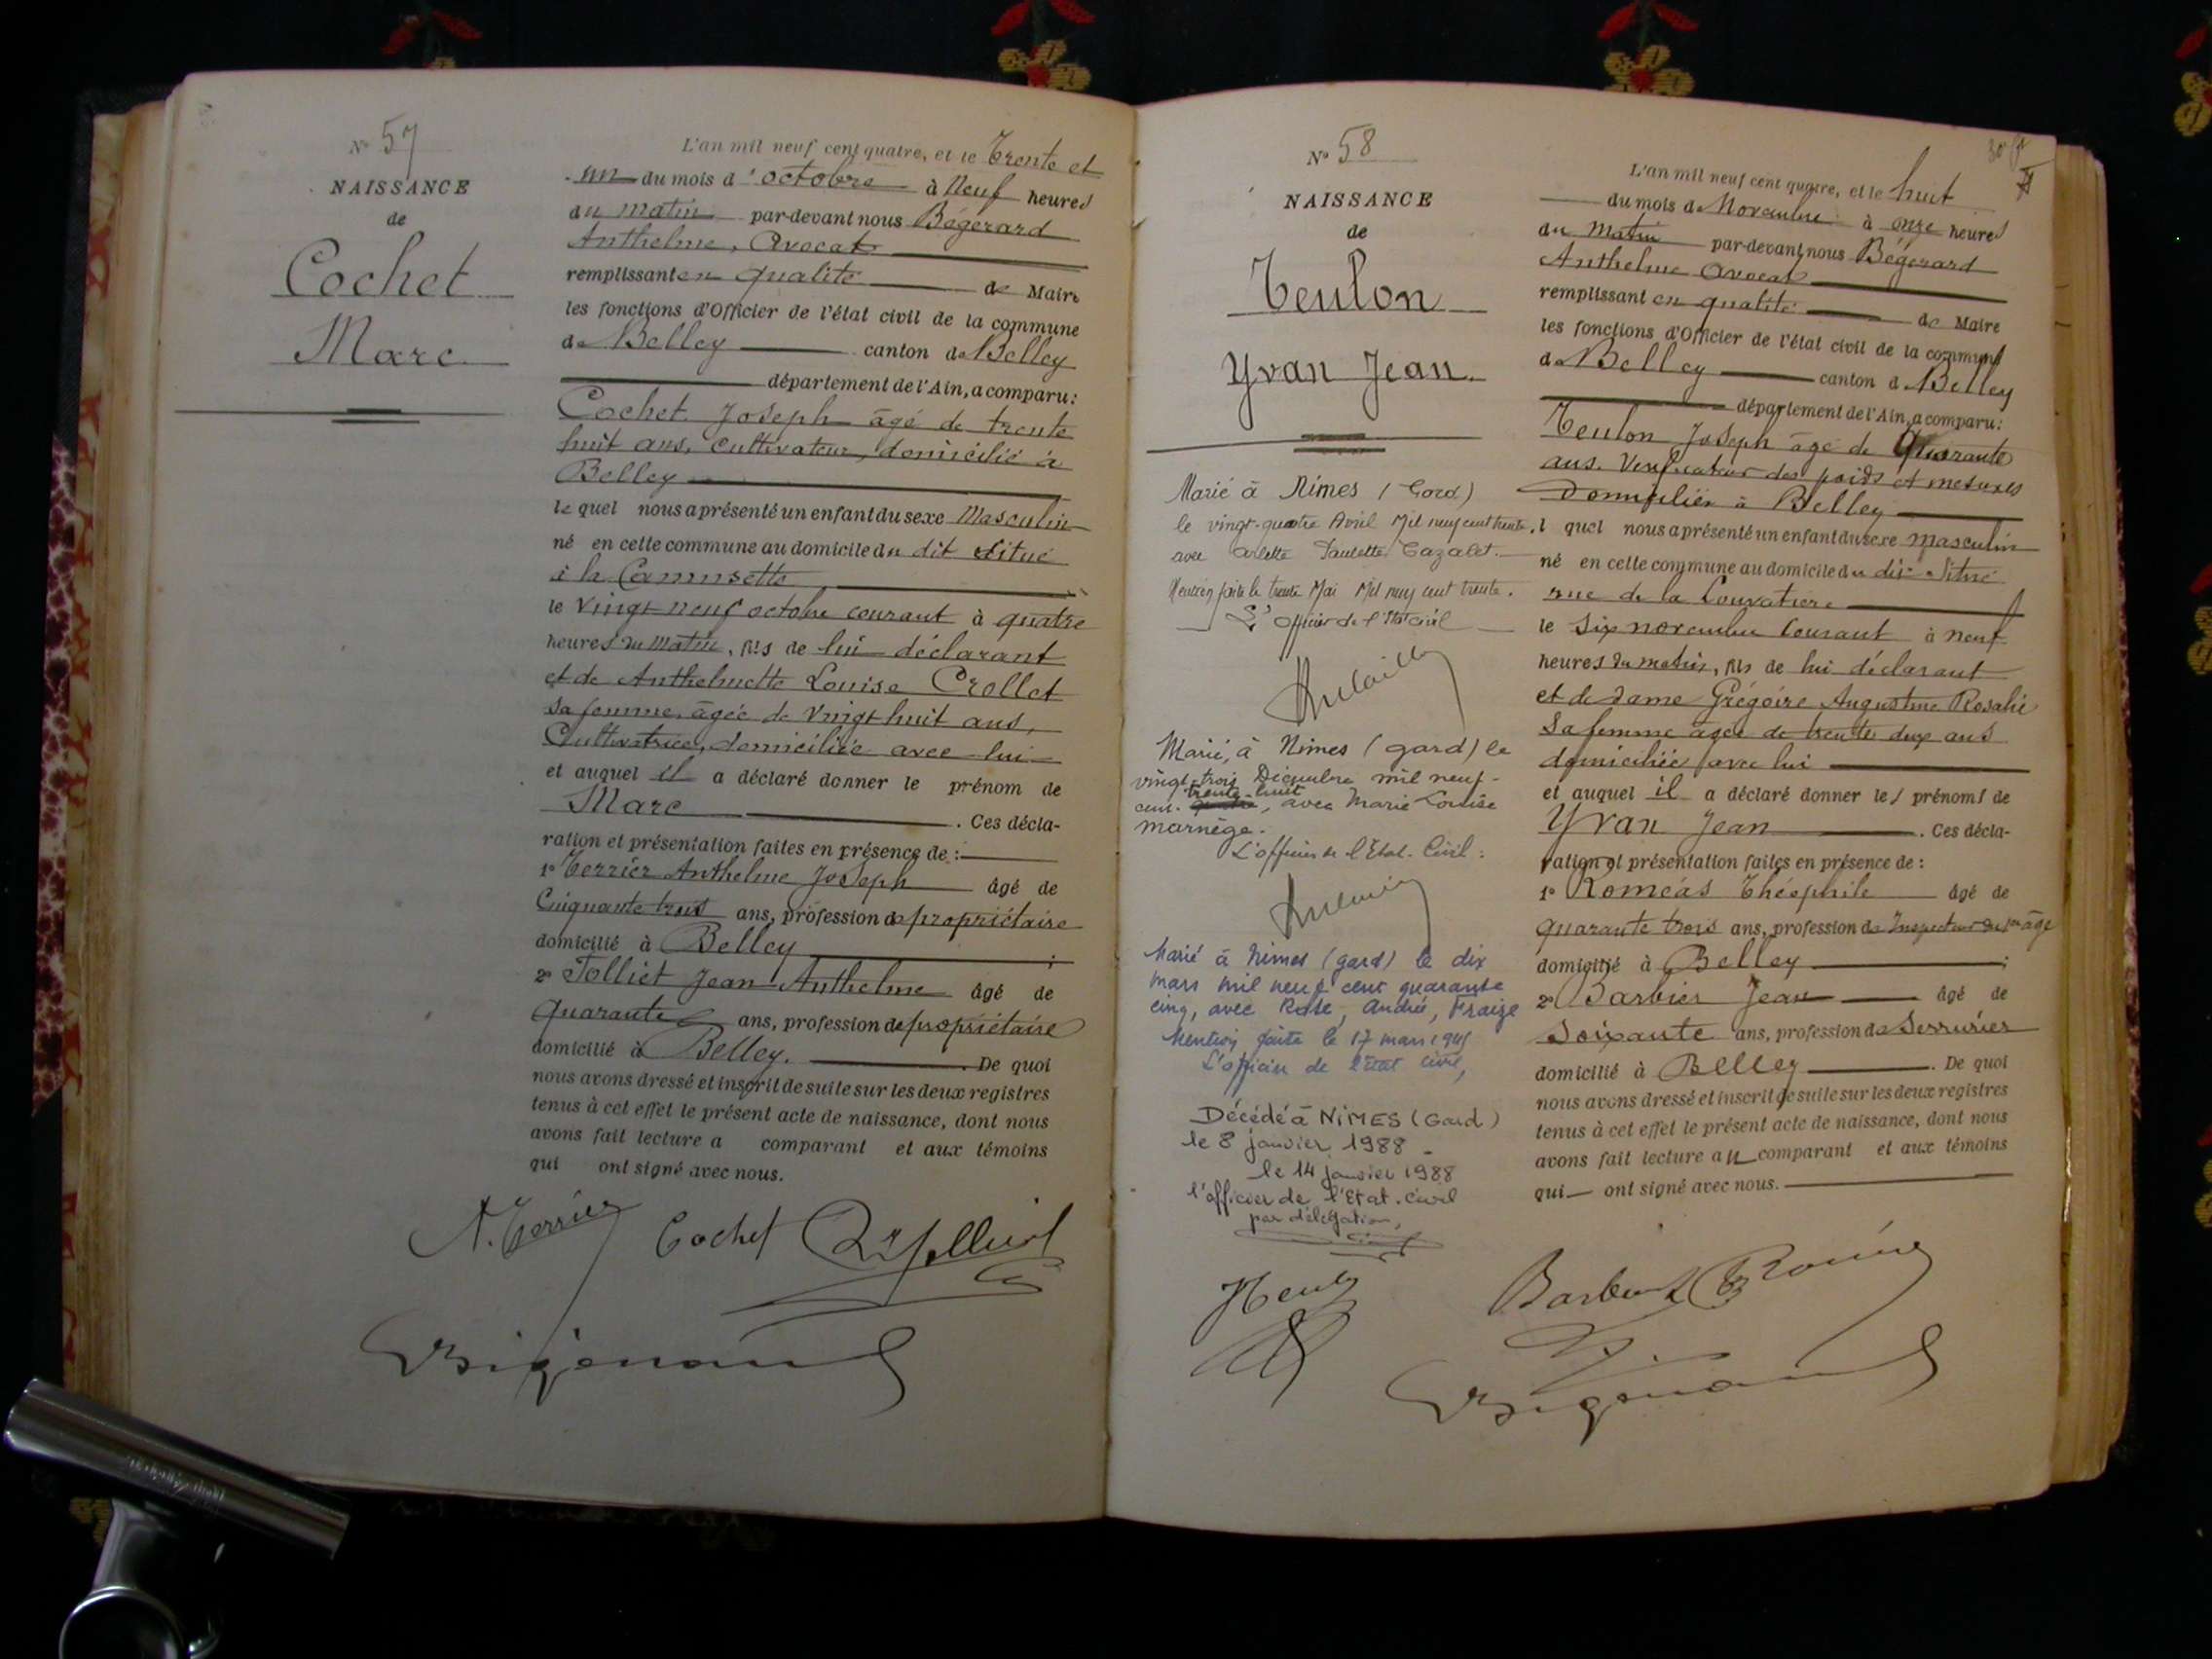 N° 57
NAISSANCE
de
Cochet
Marc
L'an mil neuf cent quatre, et le Trente et
un du mois d'octobre à Neuf heures
du matin par-devant nous Bégérard
Anthelme, Avocat
remplissant en qualité de Maire
les fonctions d'Officier de l'état civil de la commune
de Belley canton de Belley
département de l'Ain, a comparu:
Cochet Joseph âgé de trente
huit ans, Cultivateur, domicilié à
Belley
le quel nous a présenté un enfant du sexe Masculin
né en cette commune au domicile du dit situé
à la Camusette
le vingt neuf octobre courant à quatre
heures du matin, fils de lui déclarant
et de Anthelmette Louise Crollet
sa femme, âgée de vingt huit ans,
Cultivatrice, domiciliée avec lui
et auquel il a déclaré donner le prénom de
Marc . Ces décla-
ration et présentation faites en présence de :
1° Terrier Anthelme Joseph âgé de
Cinquante trois ans, profession de propriétaire
domicilié à Belley ;
2° Tolliet Jean Anthelme âgé de
Quarante ans, profession de propriétaire
domicilié à Belley. . De quoi
nous avons dressé et inscrit de suite sur les deux registres
tenus à cet effet le présent acte de naissance, dont nous
avons fait lecture a comparant et aux témoins
qui ont signé avec nous.
A. Terrier Cochet
N° 58
NAISSANCE
de
Teulon
Yvan Jean.
Marié à Nimes (Gard)
le vingt-quatre Avril Mil neuf cent trente.
avec Arlette Paulette Cazalet.
Mention faite le trente Mai Mil neuf cent trente.
L'officier de l'Etat civil
Marié, à Nimes (gard) le
vingt-trois Décembre mil neuf-
cent trente huit, avec Marie Louise
marnège.
L'officier de l'Etat-Civil:
Marié à Nimes (gard) le dix
mars mil neuf cent quarante
cinq, avec Rose, Andrée, Fraize
Mention faite le 17 mars 1945
L'officier de l'état civil,
Décédé à NIMES (Gard)
le 8 janvier 1988 -
le 14 janvier 1988
l'officier de l'Etat-civil
par délégation,
L'an mil neuf cent quatre, et le huit
du mois de Novembre à onze heures
du Matin par-devant nous Bégérard
Anthelme avocat
remplissant en qualité de Maire
les fonctions d'Officier de l'état civil de la commune
de Belley canton de Belley
département de l'Ain, a comparu:
Teulon Joseph âgé de Quarante
ans. Vérificateur des poids et mesures
Domicilié à Belley
l quel nous a présenté un enfant du sexe masculin
né en cette commune au domicile du dit situé
rue de la Louvatière
le six novembre courant à neuf
heures du matin, fils de lui déclarant
et de Dame Grégoire Augustine Rosalie
Sa femme âgée de trente deux ans
domiciliée avec lui
et auquel il a déclaré donner les prénoms de
Yvan Jean . Ces décla-
ration et présentation faites en présence de :
1° Roméas Théophile âgé de
quarante trois ans, profession de Inspecteur du 1er âge
domicilié à Belley ;
2° Barbier Jean âgé de
Soixante ans, profession de Serrurier
domicilié à Belley . De quoi
nous avons dressé et inscrit de suite sur les deux registres
tenus à cet effet le présent acte de naissance, dont nous
avons fait lecture au comparant et aux témoins
qui ont signé avec nous.